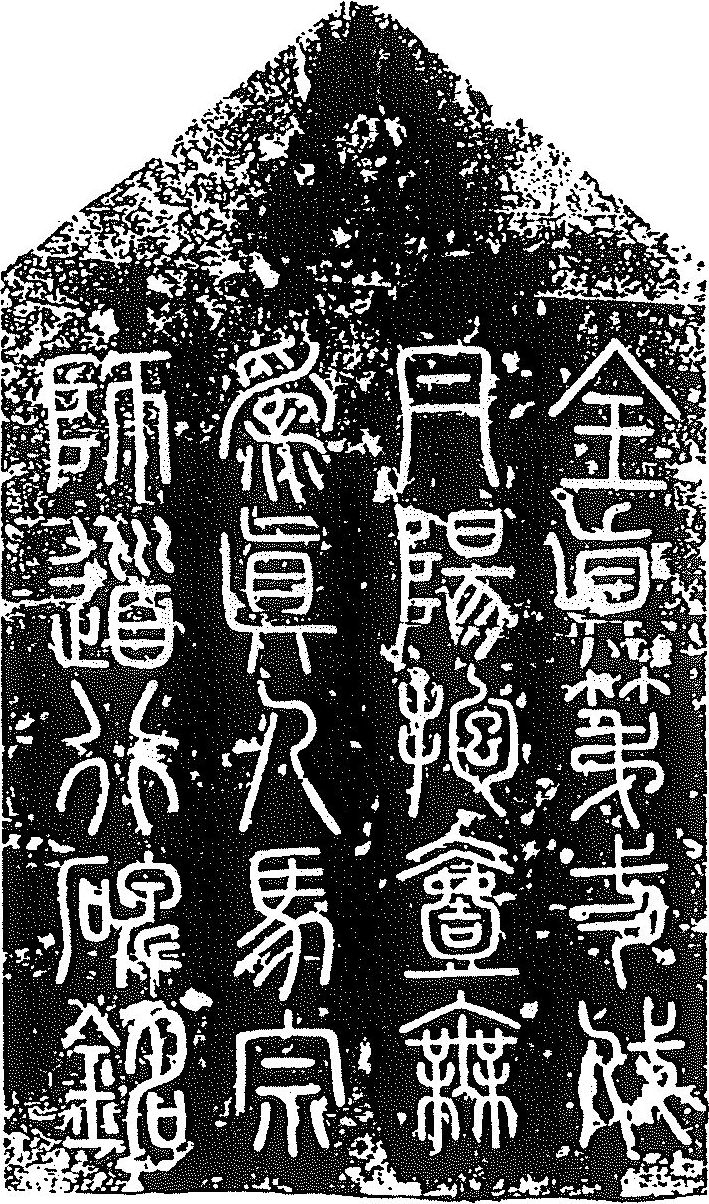 全眞第二代
丹陽抱壹無
爲眞人馬宗
師道行碑銘